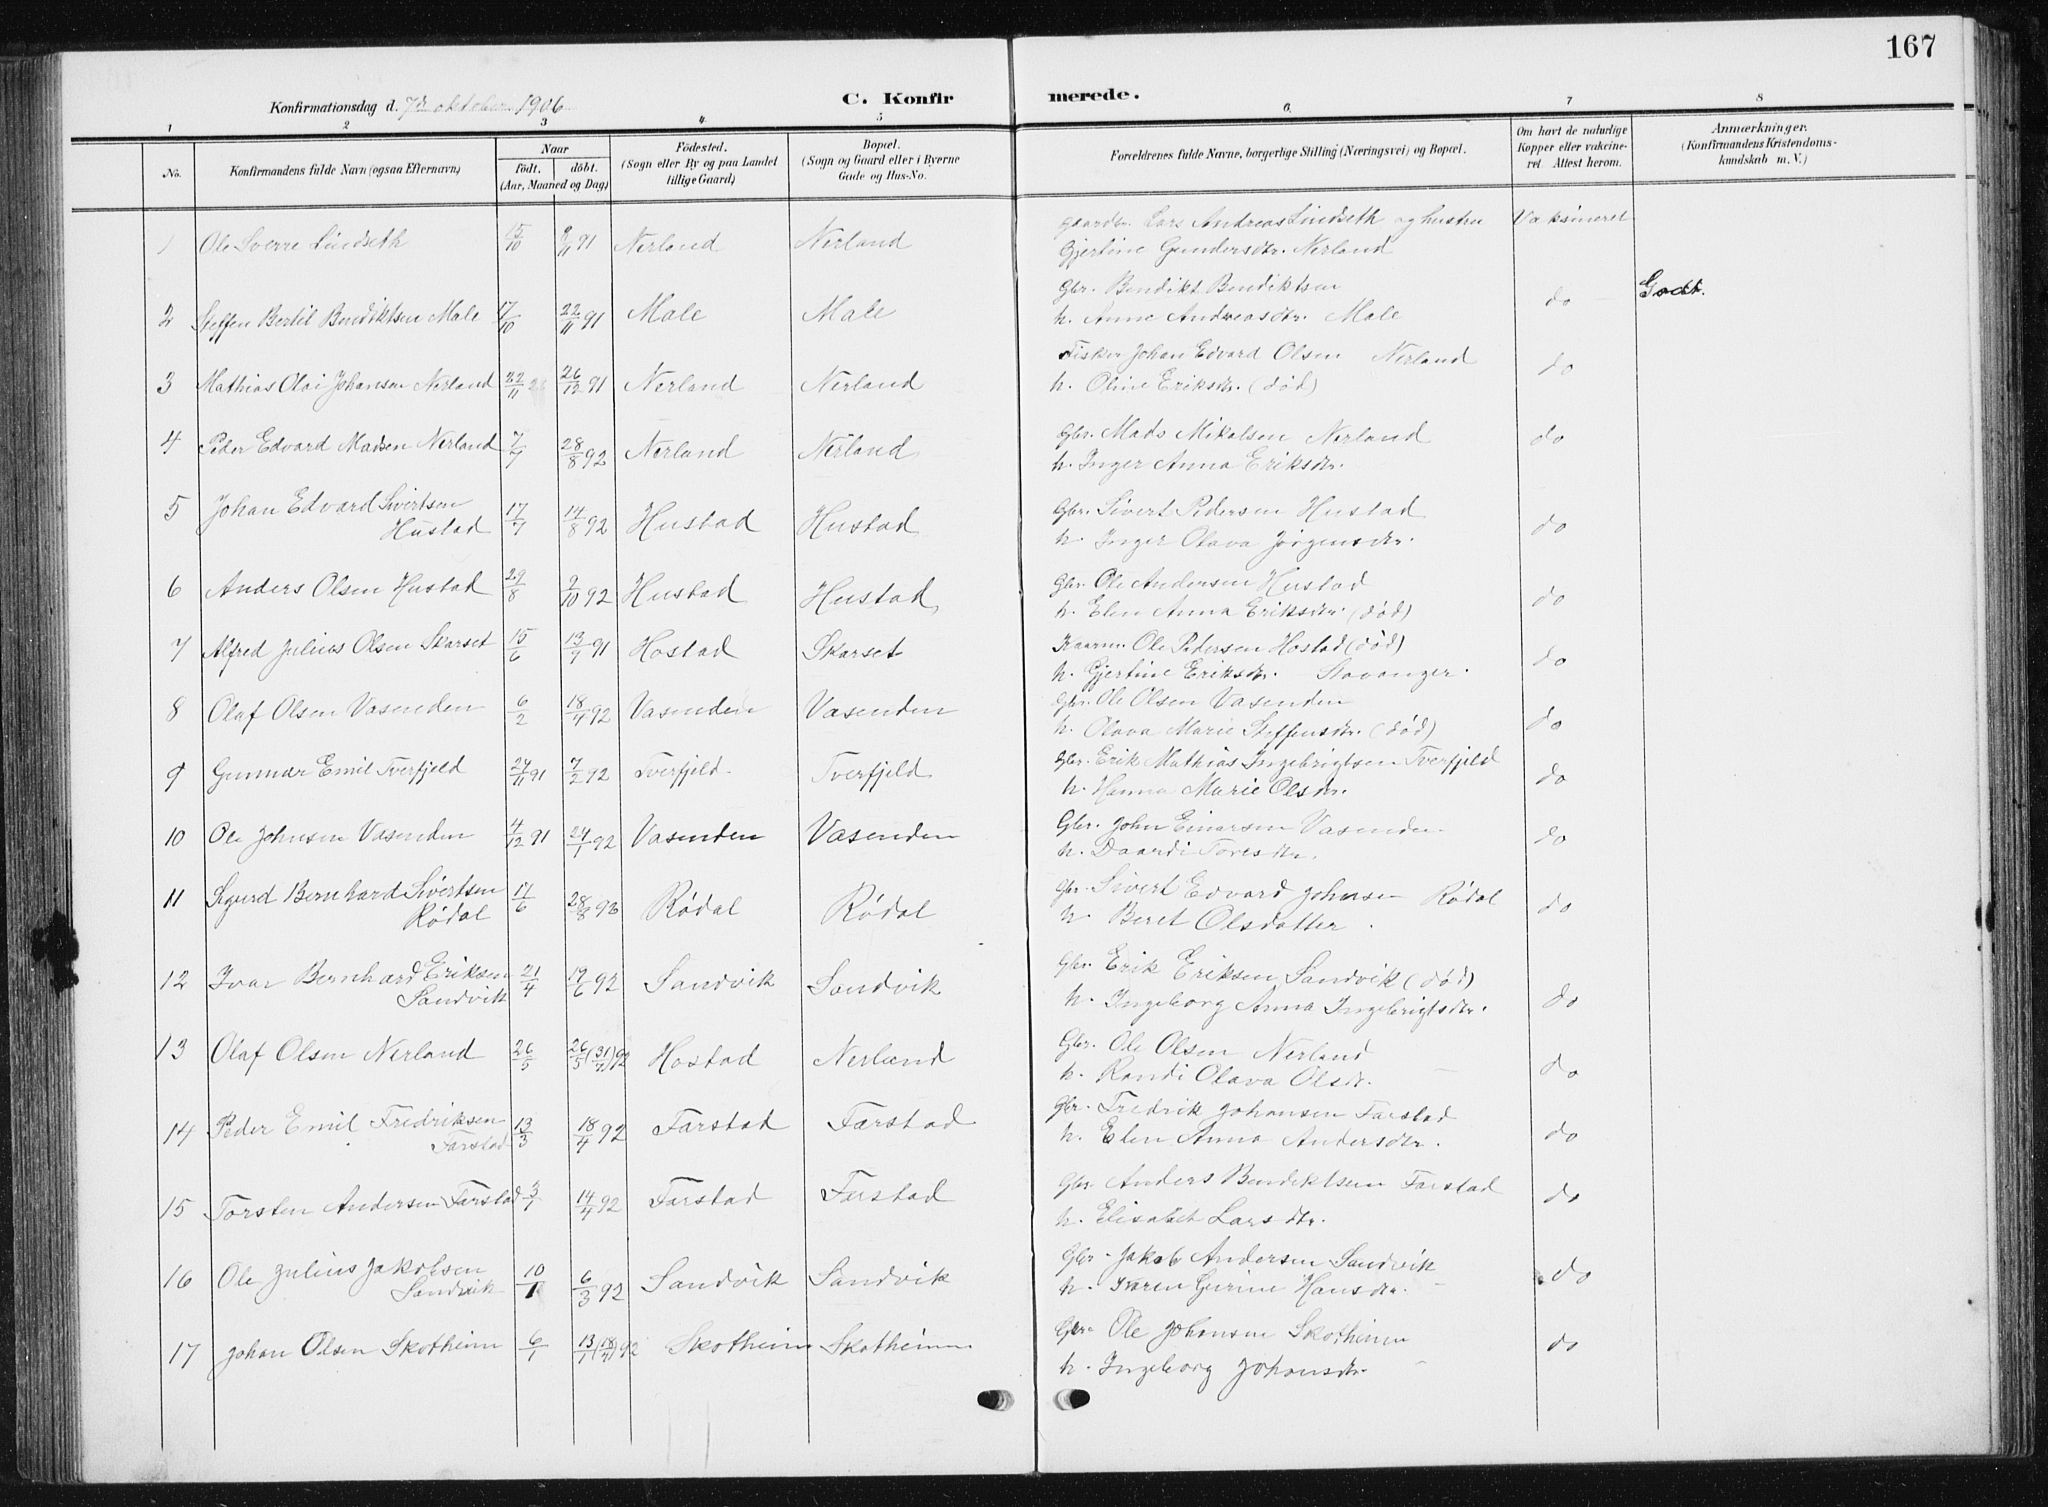 167
Konfirmationsdag d. 7de oktober 1906 C. Konfir merede.
1 2 3 4 5 6 7 8
No. Konfirmandens fulde Navn (ogsaa Efternavn) Naar födt. döbt. (Aar, Maaned og Dag) Födested. (Sogn eller By og paa Landet tillige Gaard) Bopæl. (Sogn og Gaard eller i Byerne Gade og Hus-No. Forældrenes fulde Navne, borgerlige Stilling (Næringsvei) og Bopæl. Om havt de naturlige Kopper eller vakcineret Attest herom. Anmærkninger. (Konfirmandens Kristendomskundskab m. V.)
1 Ole Sverre Lindseth 15/10 8/11 91 Nerland Nerland Gaardbr. Lars Andreas Lindseth og hustru Vaksineret
Gjertine Gundersdtr. Nerland
2 Steffen Bertil Bendiktsen Male 17/10 22/11 91 Male Male Gbr. Bendikt Bendiktsen do Godt.
h. Anne Andreasdtr. Male
3 Mathias Olai Johansen Nerland 22/11 26/12 91 Nerland Nerland Fisker Johan Edvard Olsen Nerland do
h. Oline Eriksdtr. (død)
4 Peder Edvard Madsen Nerland 7/7 28/8 92 Nerland Nerland Gbr. Mads Mikalsen Nerland do
h. Inger Anna Eriksdtr.
5 Johan Edvard Sivertsen Hustad 17/7 14/8 92 Hustad Hustad Gbr. Sivert Pedersen Hustad do
h. Inger Olava Jørgensdtr.
6 Anders Olsen Hustad 29/8 2/10 92 Hustad Hustad Gbr. Ole Andersen Hustad do
h. Elen Anna Eriksdtr. (død)
7 Alfred Julius Olsen Skarset 15/6 13/9 91 Hostad Skarset Kaarm. Ole Pedersen Hostad (død) do
h. Gjertine Eriksdtr. Stavanger.
8 Olaf Olsen Vasenden 6/2 18/4 92 Vasenden Vasenden Gbr. Ole Olsen Vasenden do
h. Olava Marie Steffensdtr. (død)
9 Gunnar Emil Tverfjeld 24/11 91 7/2 92 Tverfjeld Tverfjeld Gbr. Erik Mathias Ingebrigtsen Tverfjeld do
h. Hanna Marie Olsdtr.
10 Ole Johnsen Vasenden 4/12 91 24/1 92 Vasenden Vasenden Gbr. John Einarsen Vasenden do
h. Daardi Toresdtr.
11 Sigurd Bernhard Sivertsen Rødal 17/6 28/8 92 Rødal Rødal Gbr. Sivert Edvard Johnsen Rødal do
h. Beret Olsdatter
12 Ivar Bernhard Eriksen Sandvik 21/4 19/6 92 Sandvik Sandvik Gbr. Erik Eriksen Sandvik (død) do
h. Ingeborg Anna Ingebrigtsdtr.
13 Olaf Olsen Nerland 26/5 26/5 (31/7) 92 Hostad Nerland Gbr. Ole Olsen Nerland do
h. Randi Olava Olsdtr.
14 Peder Emil Fredriksen Farstad 13/3 18/4 92 Farstad Farstad Gbr. Fredrik Johansen Farstad do
h. Elen Anna Andersdtr.
15 Torsten Andersen Farstad 3/1 14/4 92 Farstad Farstad Gbr. Anders Bendiktsen Farstad do
h. Elisabet Larsdtr.
16 Ole Julius Jakobsen Sandvik 10/1 6/3 92 Sandvik Sandvik Gbr. Jakob Andersen Sandvik do
h. Karen Gurine Hansdtr.
17 Johan Olsen Skotheim 6/1 13/1 92 Skotheim Skotheim Gbr. Ole Johansen Skotheim do
h. Ingeborg Johansdtr.